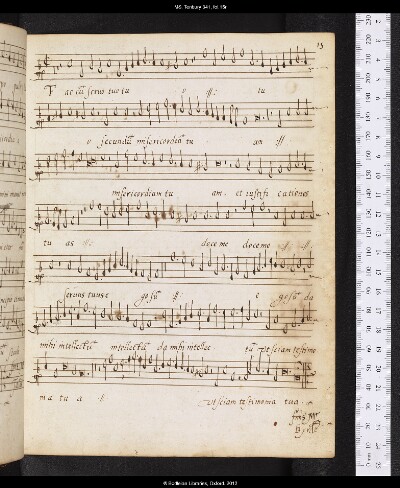 MS. Tenbury 341, fol. 15r
15
Fac cū servo tuo tu o :||: tu
o secundū misericordiā tu am :||
misericordiam tu am et iustifi cationes
tu as doce me doce me :||:
servus tuus e go sū :||: e go sū da
mihi intellectū intellectū da mihi intellec tū ut sciam testimo
ni a tu a :|| ut sciam testimonia tua
finis Mr
© Bodleian Libraries, Oxford, 2012